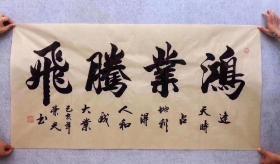 鴻業騰飛
達
天時
占
地利
得
人和
成
大業
己亥年
榮天
书